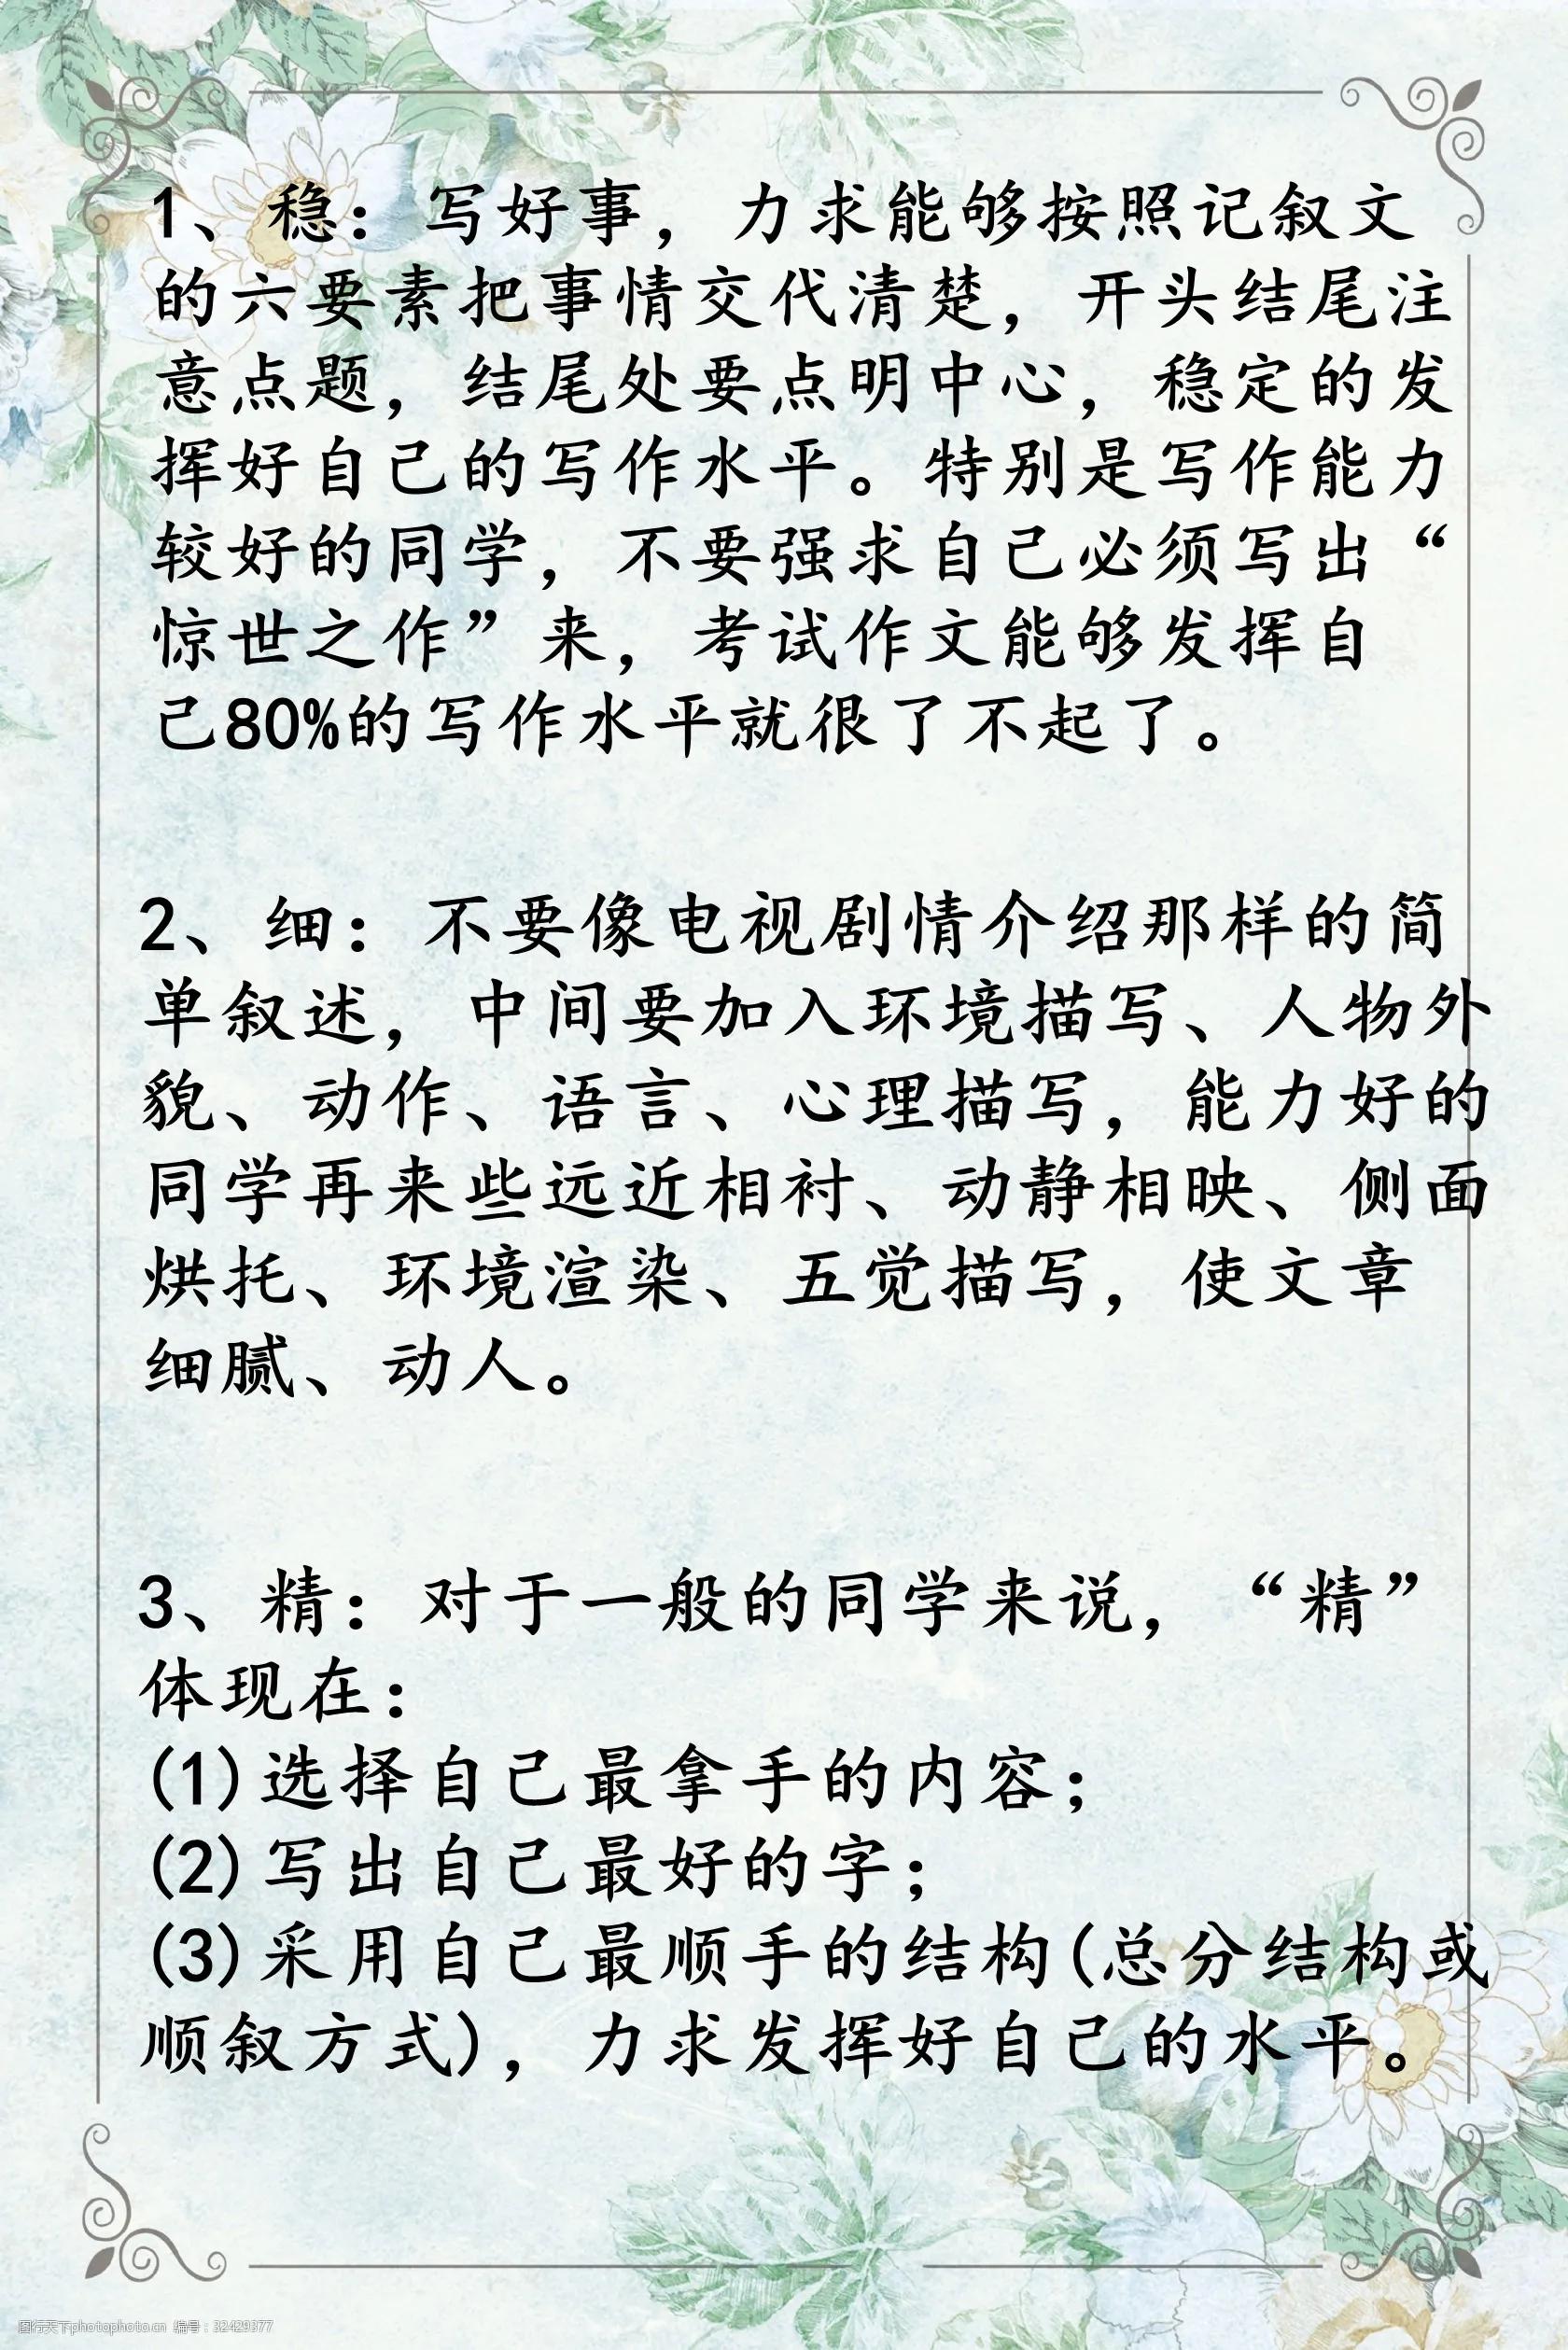 1、稳：写好事，力求能够按照记叙文
的六要素把事情交代清楚，开头结尾注
意点题，结尾处要点明中心，稳定的发
挥好自己的写作水平。特别是写作能力
较好的同学，不要强求自己必须写出“
惊世之作”来，考试作文能够发挥自
己80%的写作水平就很了不起了。
2、细：不要像电视剧情介绍那样的简
单叙述，中间要加入环境描写、人物外
貌、动作、语言、心理描写，能力好的
同学再来些远近相衬、动静相映、侧面
烘托、环境渲染、五觉描写，使文章
细腻、动人。
3、精：对于一般的同学来说，“精”
体现在：
(1)选择自己最拿手的内容；
(2)写出自己最好的字；
(3)采用自己最顺手的结构(总分结构或
顺叙方式)，力求发挥好自己的水平。
图行天下photophoto.cn 编号：32429377